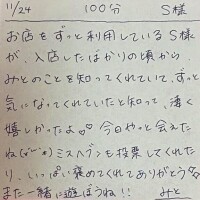 11/24 100分 S様
お店をずっと利用しているS様
が、入店したばかりの頃から
みとのことを知ってくれていて、ずっと
気になってくれていたと知って、凄く
嬉しかったよ♡ 今日やっと会えた
ね(*ˊᵕˋ*) ミスヘブンも投票してくれた
り、いっぱい褒めてくれてありがとう♡
また一緒に遊ぼうね!! みと